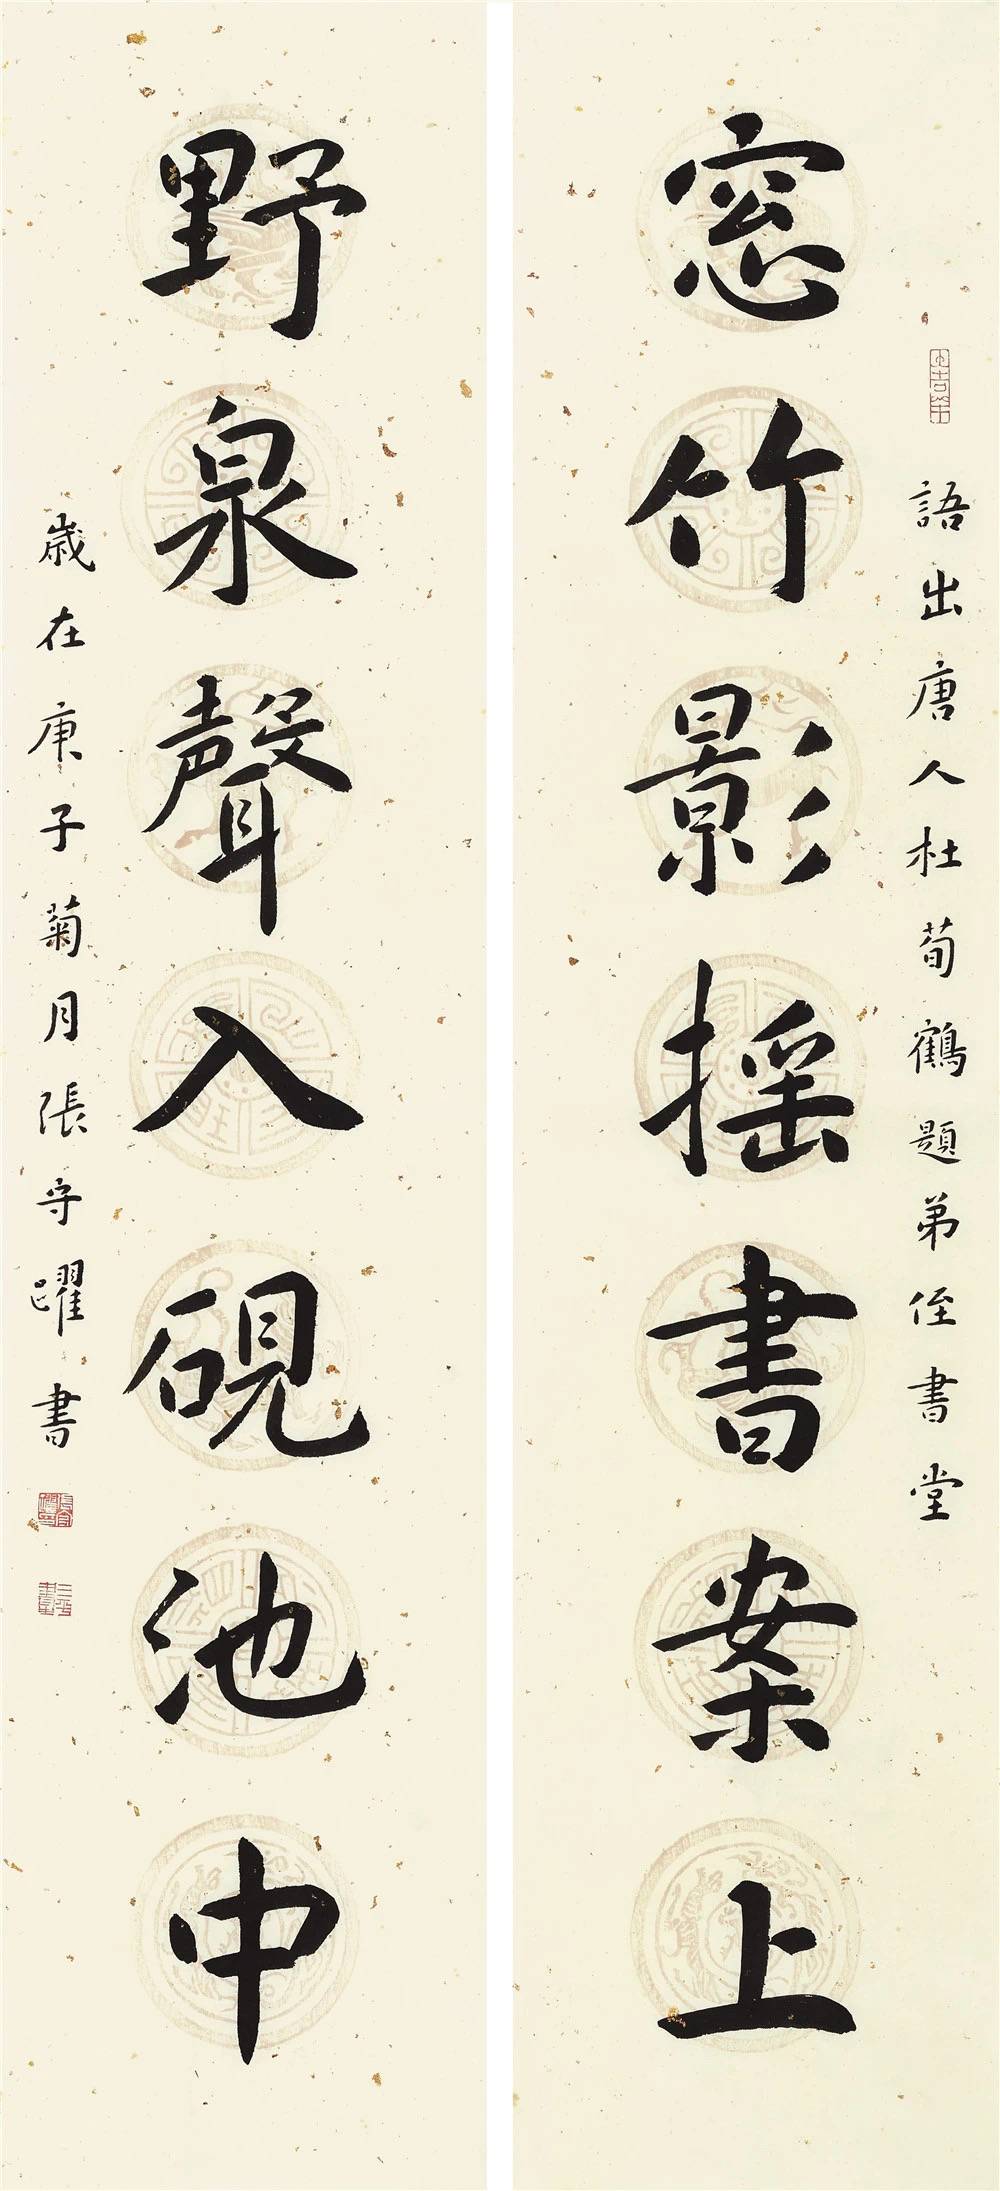 語出唐人杜荀鶴題弟侄書堂
窓竹影摇書案上
野泉聲入硯池中
歳在庚子菊月張守躍書